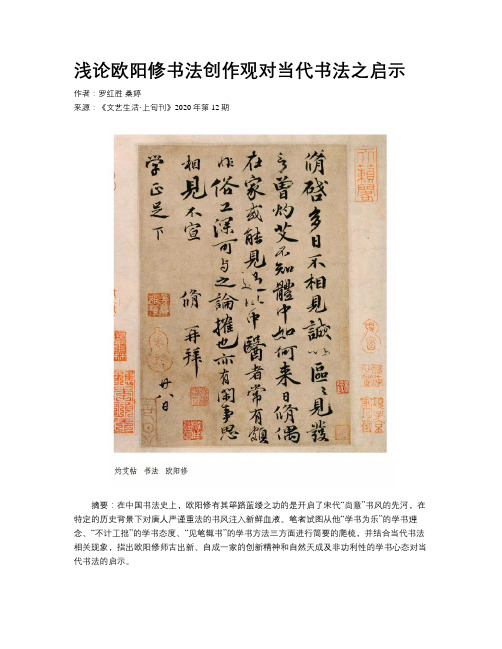 浅论欧阳修书法创作观对当代书法之启示
作者：罗红胜 桑婷
来源：《文艺生活·上旬刊》2020年第12期
脩啓多日不相見誠以區區見發
言曾灼艾不知體中如何来日脩偶
在家或能見過以中醫者常有頗
非俗工深可与之論攉也亦有閑事思
相見不宣 脩再拜 廿八日
學正足下
灼艾帖 书法 欧阳修
摘要：在中国书法史上，欧阳修有其筚路蓝缕之功的是开启了宋代“尚意”书风的先河，在
特定的历史背景下对唐人严谨重法的书风注入新鲜血液。笔者试图从他“学书为乐”的学书理
念、“不计工拙”的学书态度、“见笔辄书”的学书方法三方面进行简要的爬梳，并结合当代书法
相关现象，指出欧阳修师古出新、自成一家的创新精神和自然天成及非功利性的学书心态对当
代书法的启示。